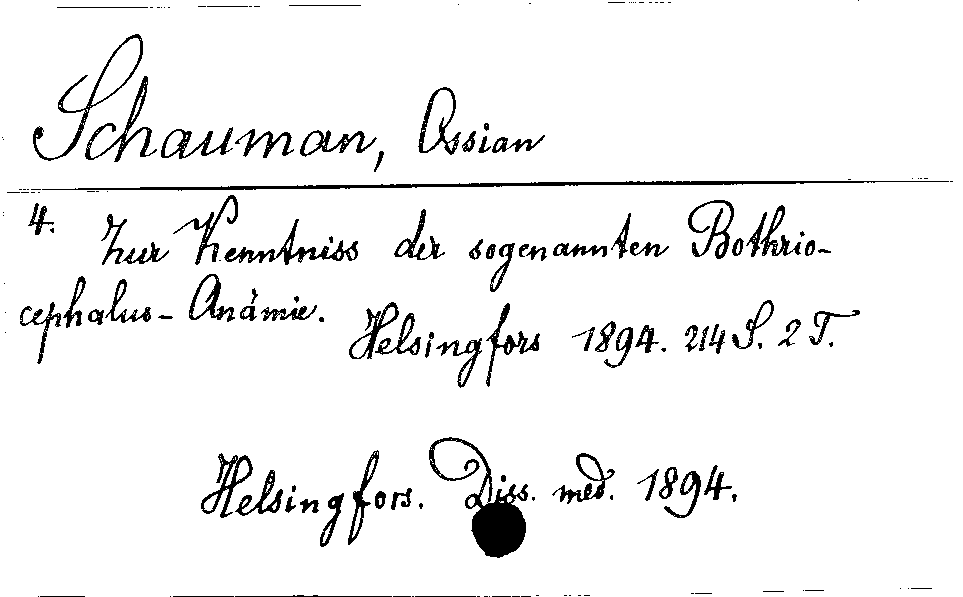 Schauman, Ossian
4. Zur Kenntniss der sogenannten Bothrio-
cephalus-Anämie.
Helsingfors 1894. 214 S. 2 T.
Helsingfors. Diss. med. 1894.